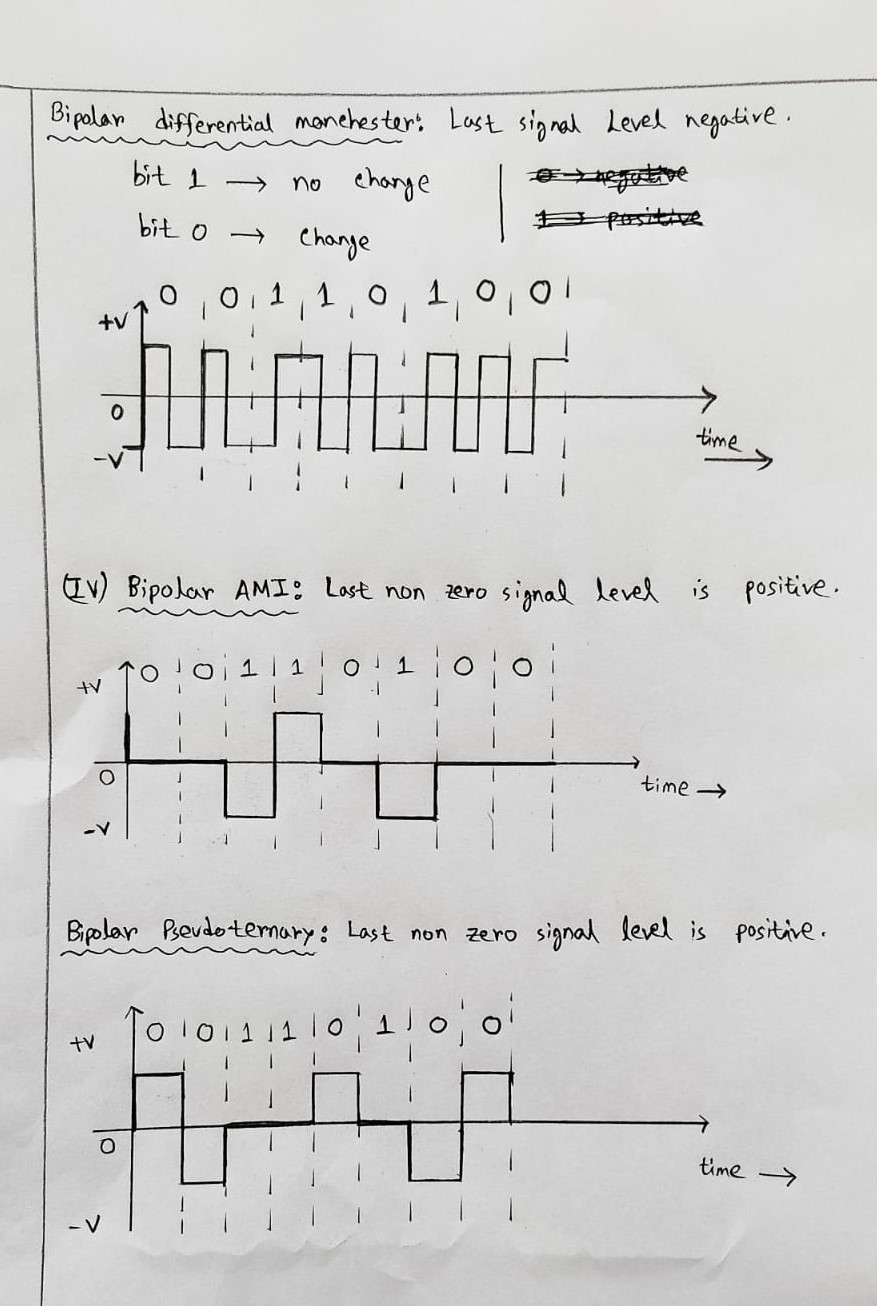 Bipolar differential manchester: Last signal Level negative.
bit 1 → no change
0 → negative
bit 0 → change
1 → positive
0 0 1 1 0 1 0 0
+V
0
-V
time
(IV) Bipolar AMI: Last non zero signal level is positive.
0 0 1 1 0 1 0 0
+V
0
time →
-V
Bipolar Pseudoternary: Last non zero signal level is positive.
0 0 1 1 0 1 0 0
+V
0
time →
-V